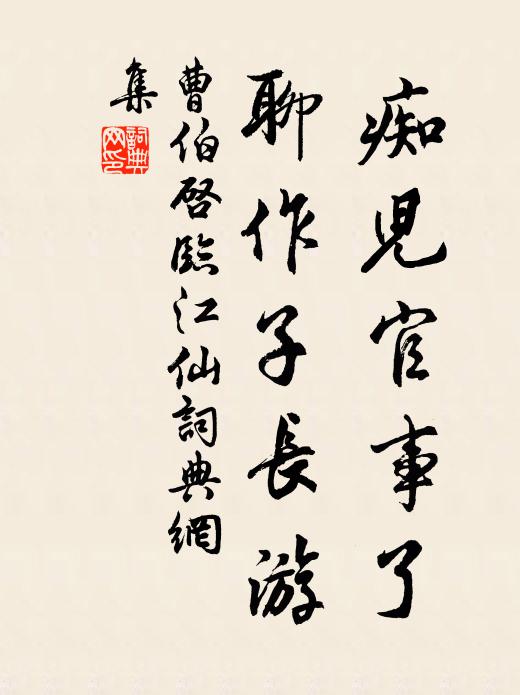 痴児官事了
聊作子長游
曹伯啓臨江仙詞典網
集
詞典網印